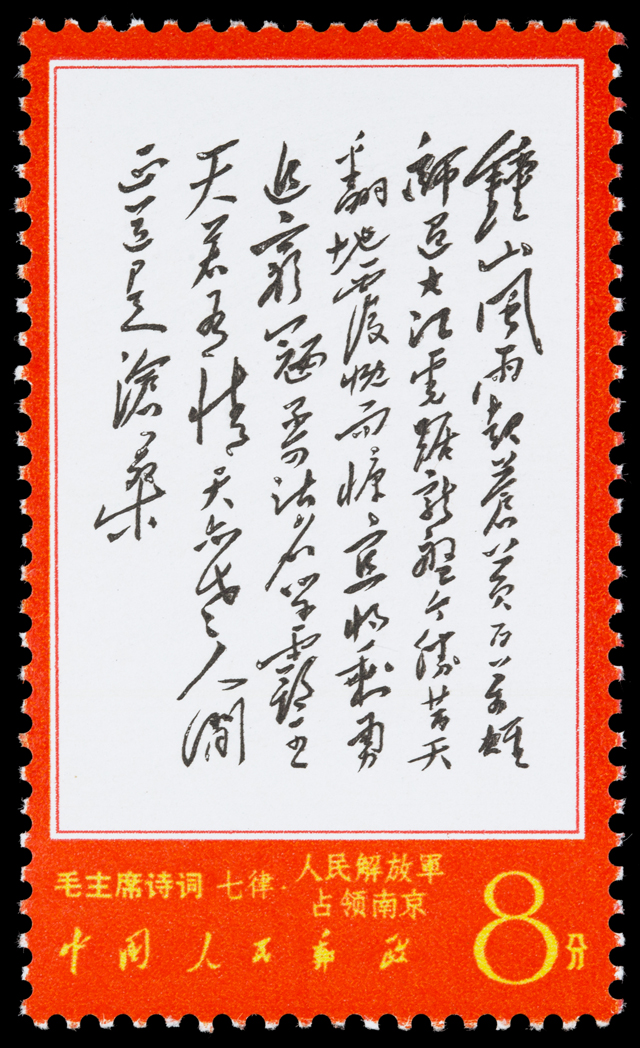 鐘山風雨起蒼黃百萬雄
師過大江虎踞龍盤今勝昔天
翻地覆慨而慷宜將剩勇
追窮寇不可沽名學霸王
天若有情天亦老人間
正道是滄桑
毛主席诗词 七律·人民解放軍
占领南京
中国人民郵政
8分